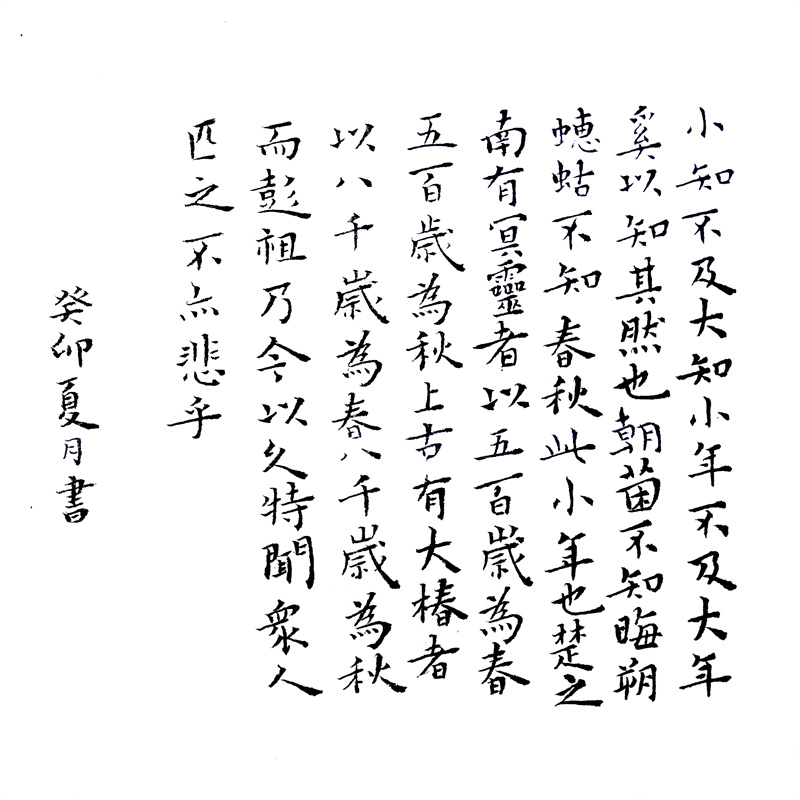 小知不及大知小年不及大年
奚以知其然也朝菌不知晦朔
蟪蛄不知春秋此小年也楚之
南有冥靈者以五百歲為春
五百歲為秋上古有大椿者
以八千歲為春八千歲為秋
而彭祖乃今以久特聞眾人
匹之不亦悲乎
癸卯夏月書